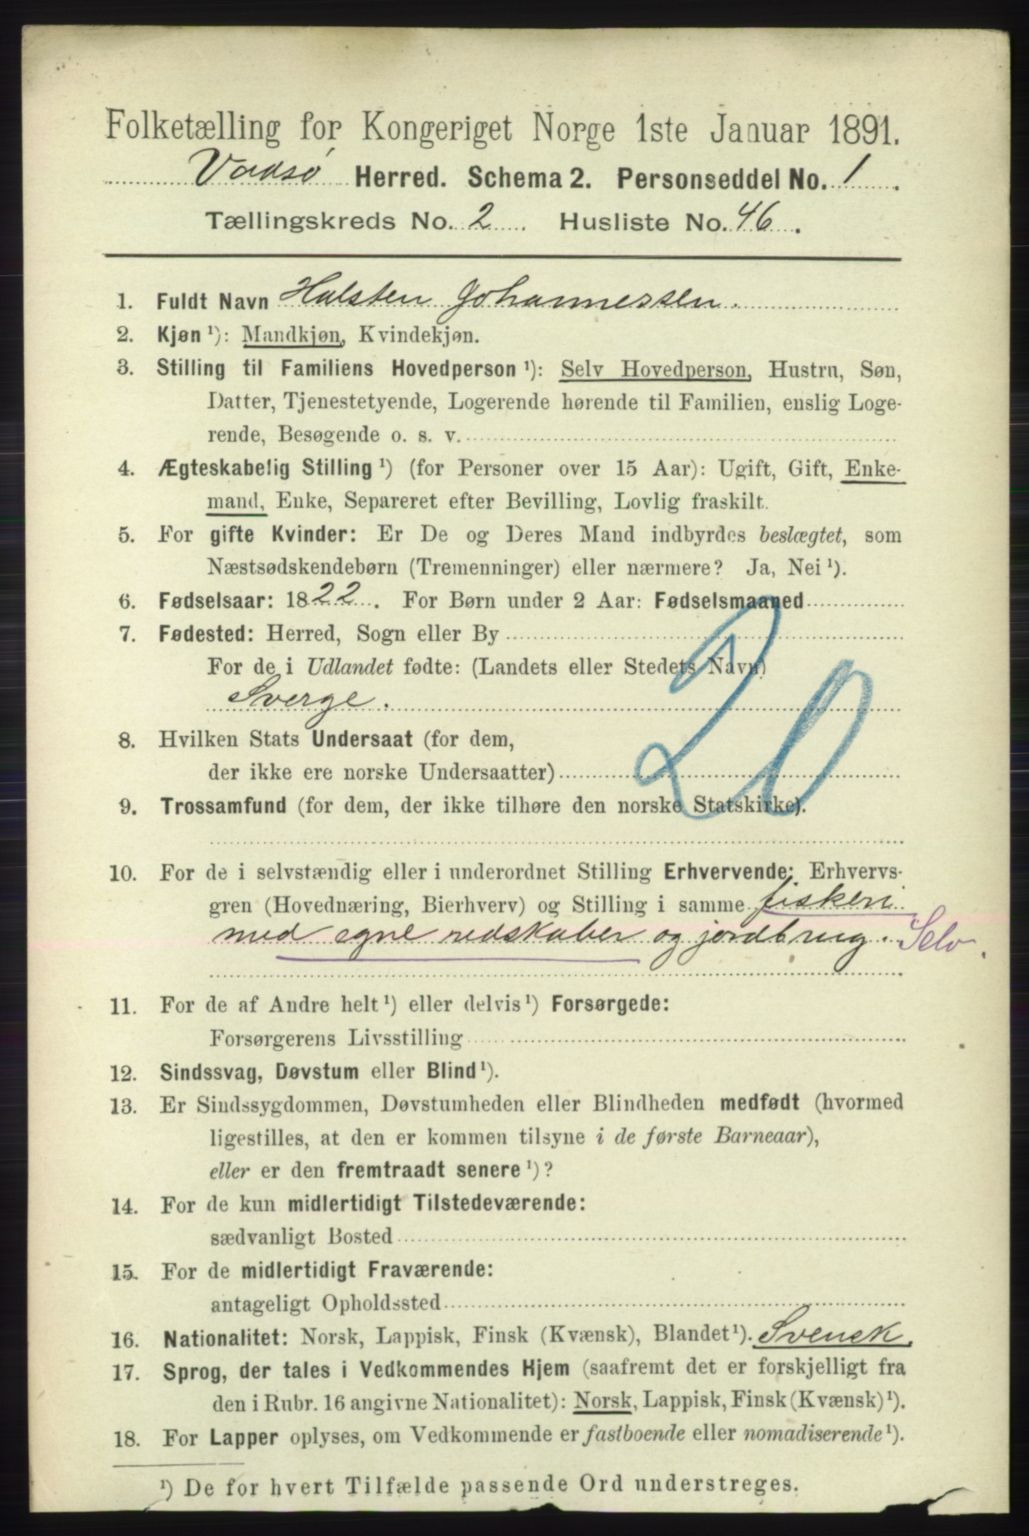 Folketælling for Kongeriget Norge 1ste Januar 1891.
Vadsø Herred. Schema 2. Personseddel No. 1.
Tællingskreds No. 2 Husliste No. 46.
1. Fuldt Navn Halsten Johannessen.
2. Kjøn ¹): Mandkjøn, Kvindekjøn.
3. Stilling til Familiens Hovedperson ¹): Selv Hovedperson, Hustru, Søn,
Datter, Tjenestetyende, Logerende hørende til Familien, enslig Loge-
rende, Besøgende o. s. v.
4. Ægteskabelig Stilling ¹) (for Personer over 15 Aar): Ugift, Gift, Enke-
mand, Enke, Separeret efter Bevilling, Lovlig fraskilt.
5. For gifte Kvinder: Er De og Deres Mand indbyrdes beslægtet, som
Næstsødskendebørn (Tremenninger) eller nærmere? Ja, Nei ¹).
6. Fødselsaar: 1822. For Børn under 2 Aar: Fødselsmaaned
7. Fødested: Herred, Sogn eller By
For de i Udlandet fødte: (Landets eller Stedets Navn)
Sverge.
20
8. Hvilken Stats Undersaat (for dem,
der ikke ere norske Undersaatter)
9. Trossamfund (for dem, der ikke tilhøre den norske Statskirke).
10. For de i selvstændig eller i underordnet Stilling Erhvervende: Erhvervs-
gren (Hovednæring, Bierhverv) og Stilling i samme fiskeri
med egne redskaber og jordbrug. Selv.
11. For de af Andre helt ¹) eller delvis ¹) Forsørgede:
Forsørgerens Livsstilling
12. Sindssvag, Døvstum eller Blind ¹).
13. Er Sindssygdommen, Døvstumheden eller Blindheden medfødt (hvormed
ligestilles, at den er kommen tilsyne i de første Barneaar),
eller er den fremtraadt senere ¹)?
14. For de kun midlertidigt Tilstedeværende:
sædvanligt Bosted
15. For de midlertidigt Fraværende:
antageligt Opholdssted
16. Nationalitet: Norsk, Lappisk, Finsk (Kvænsk), Blandet ¹). Svensk.
17. Sprog, der tales i Vedkommendes Hjem (saafremt det er forskjelligt fra
den i Rubr. 16 angivne Nationalitet): Norsk, Lappisk, Finsk (Kvænsk) ¹).
18. For Lapper oplyses, om Vedkommende er fastboende eller nomadiserende ¹).
¹) De for hvert Tilfælde passende Ord understreges.